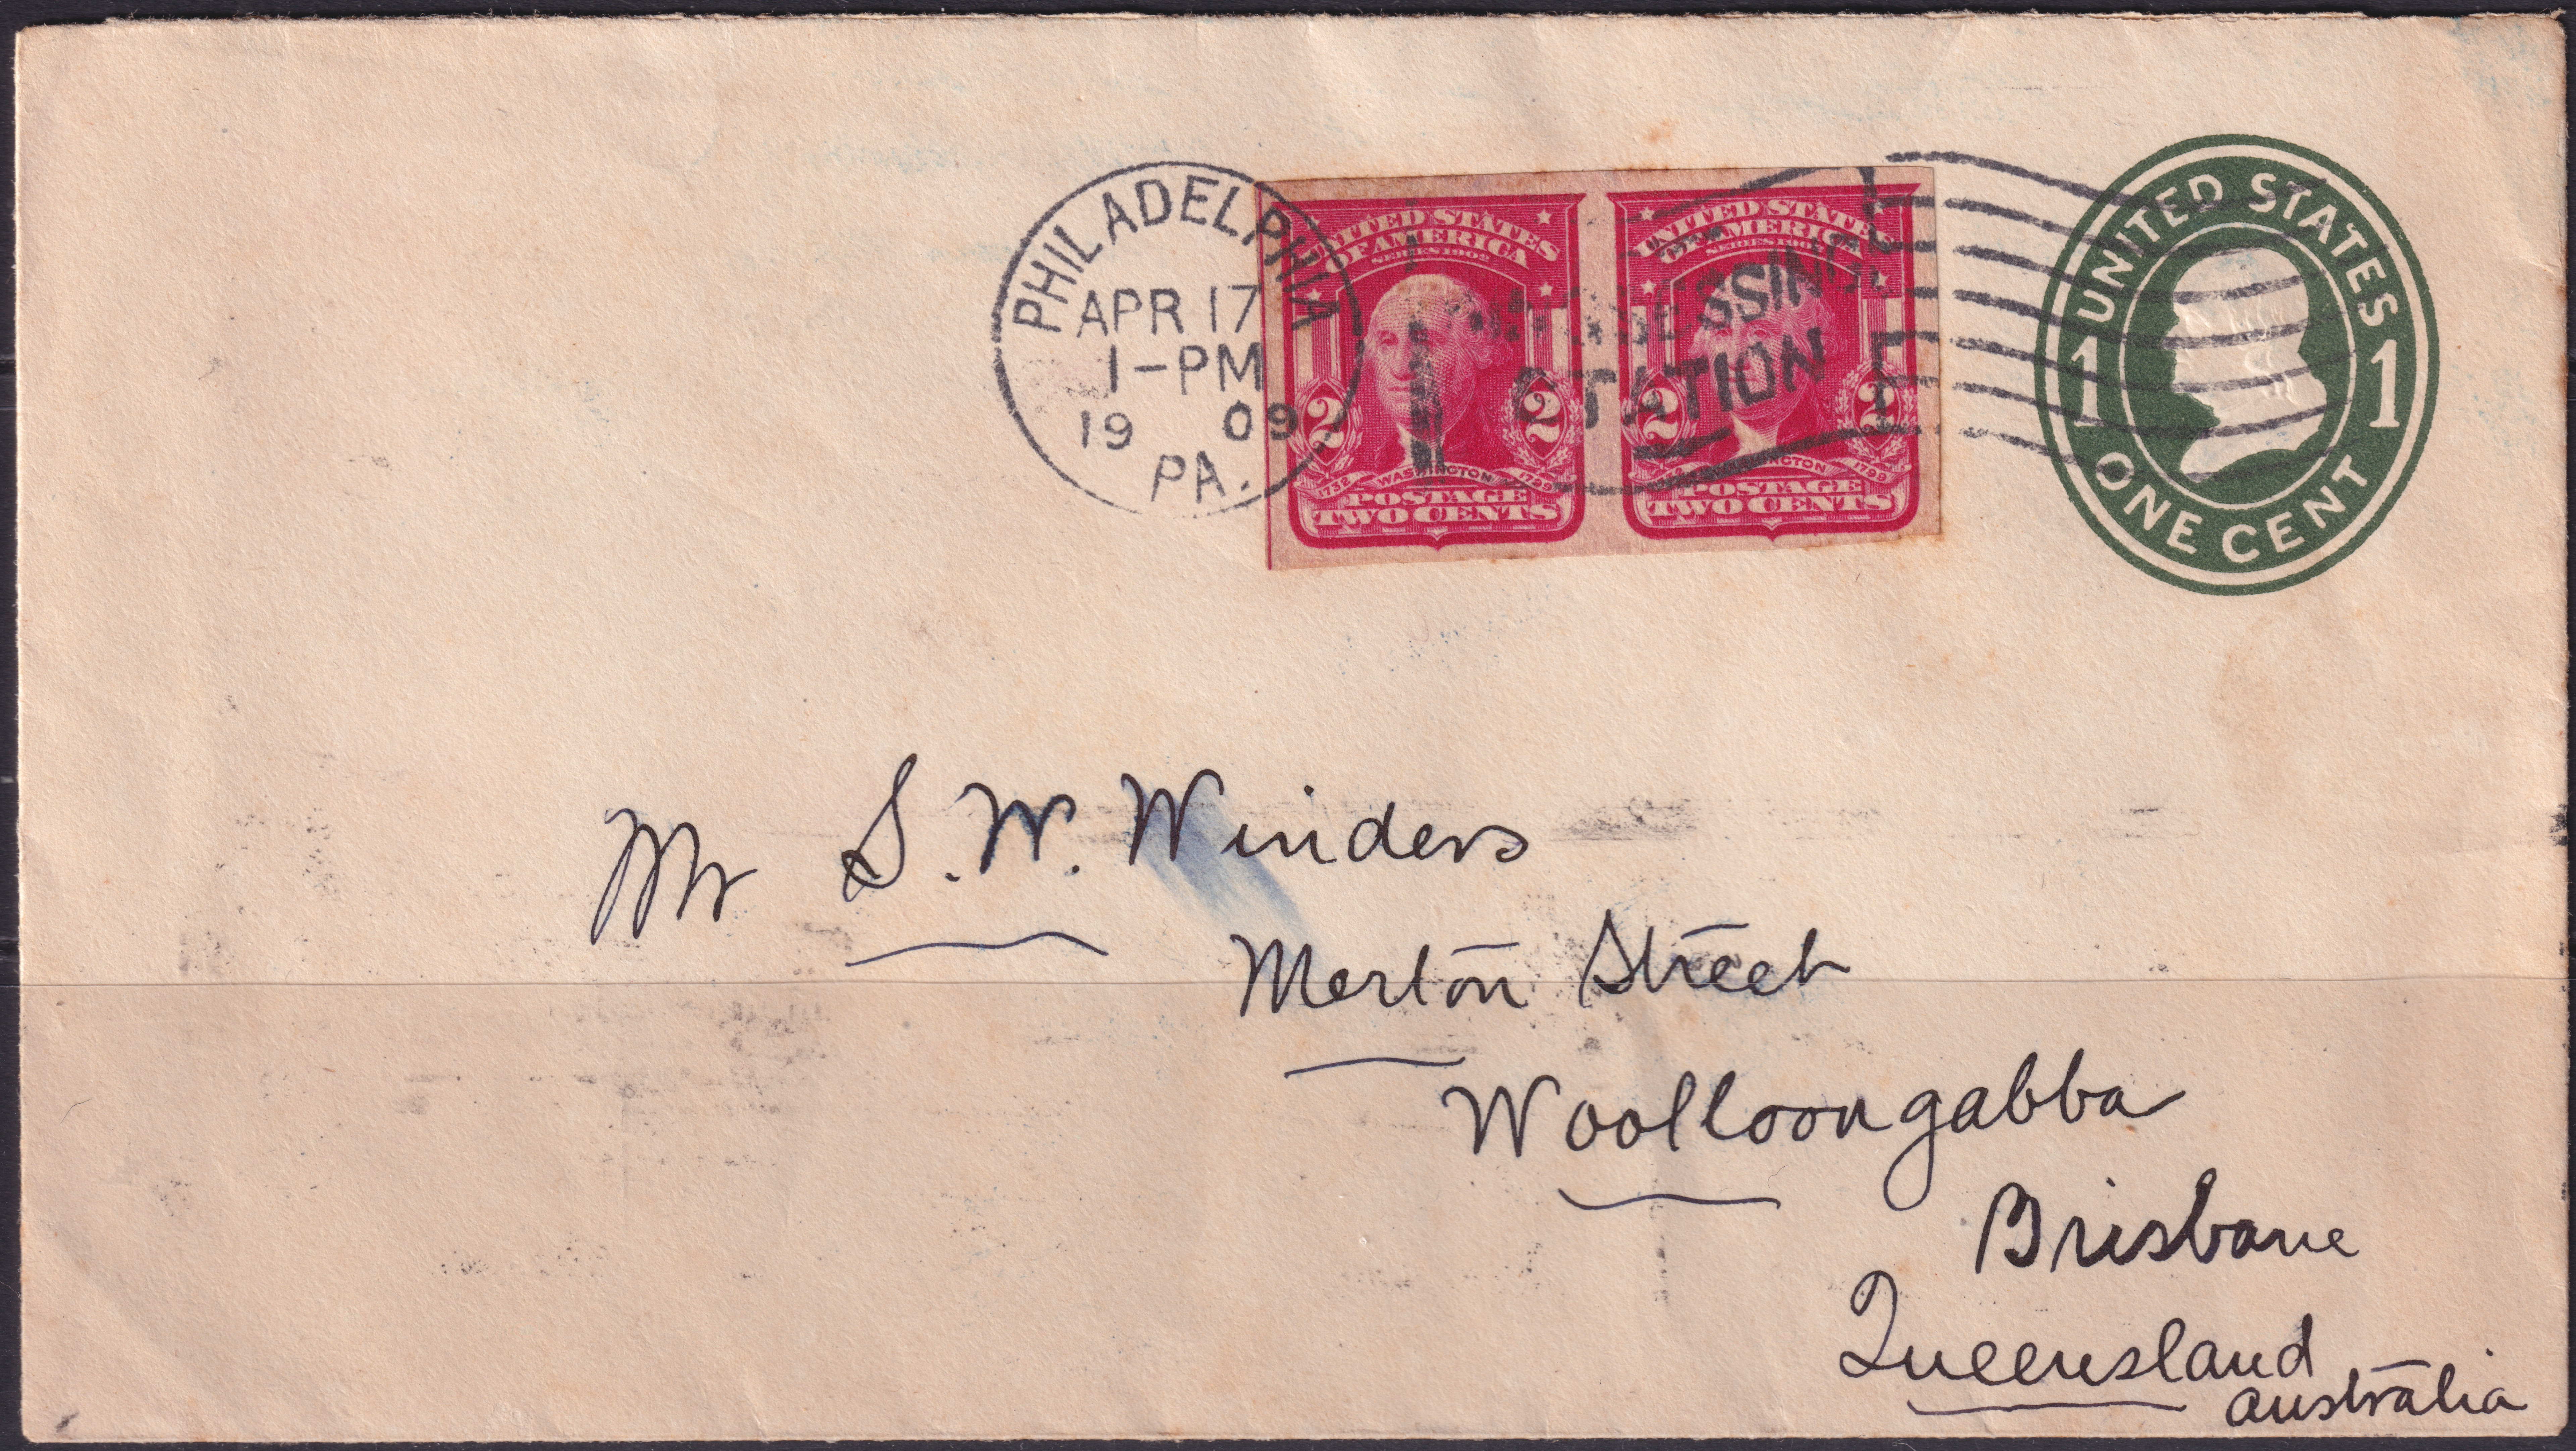 PHILADELPHIA
APR 17
1-PM
19 09
PA.
STATION
UNITED STATES
OF AMERICA
SERIES 1902
2 2
1732 WASHINGTON 1799
POSTAGE
TWO CENTS
UNITED STATES
OF AMERICA
SERIES 1902
2 2
WASHINGTON 1799
POSTAGE
TWO CENTS
UNITED STATES
1 1
ONE CENT
Mr S. W. Winders
Merton Street
Woolloongabba
Brisbane
Queensland
Australia